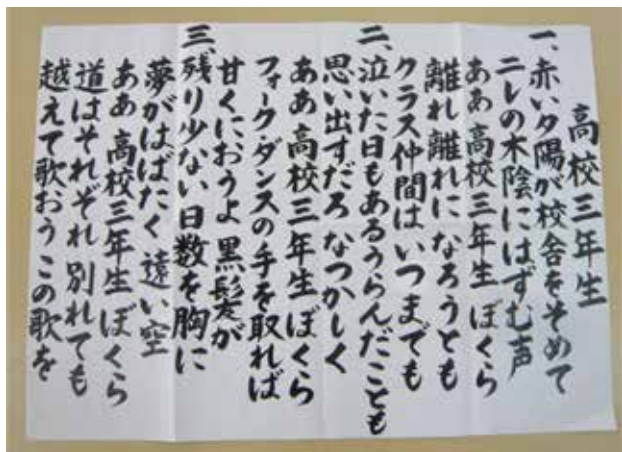 高校三年生
一、赤い夕陽が校舎をそめて
ニレの木陰にはずむ声
ああ高校三年生 ぼくら
離れ離れに なろうとも
クラス仲間は いつまでも
二、泣いた日もあるうらんだことも
思い出すだろ なつかしく
ああ 高校三年生 ぼくら
フォーク・ダンスの手を取れば
甘くにおうよ 黒髪が
三、残り少ない日数を胸に
夢がはばたく 遠い空
ああ 高校三年生 ぼくら
道はそれぞれ 別れても
越えて歌おう この歌を